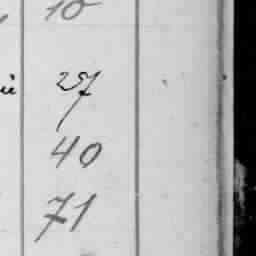 10
27
40
71